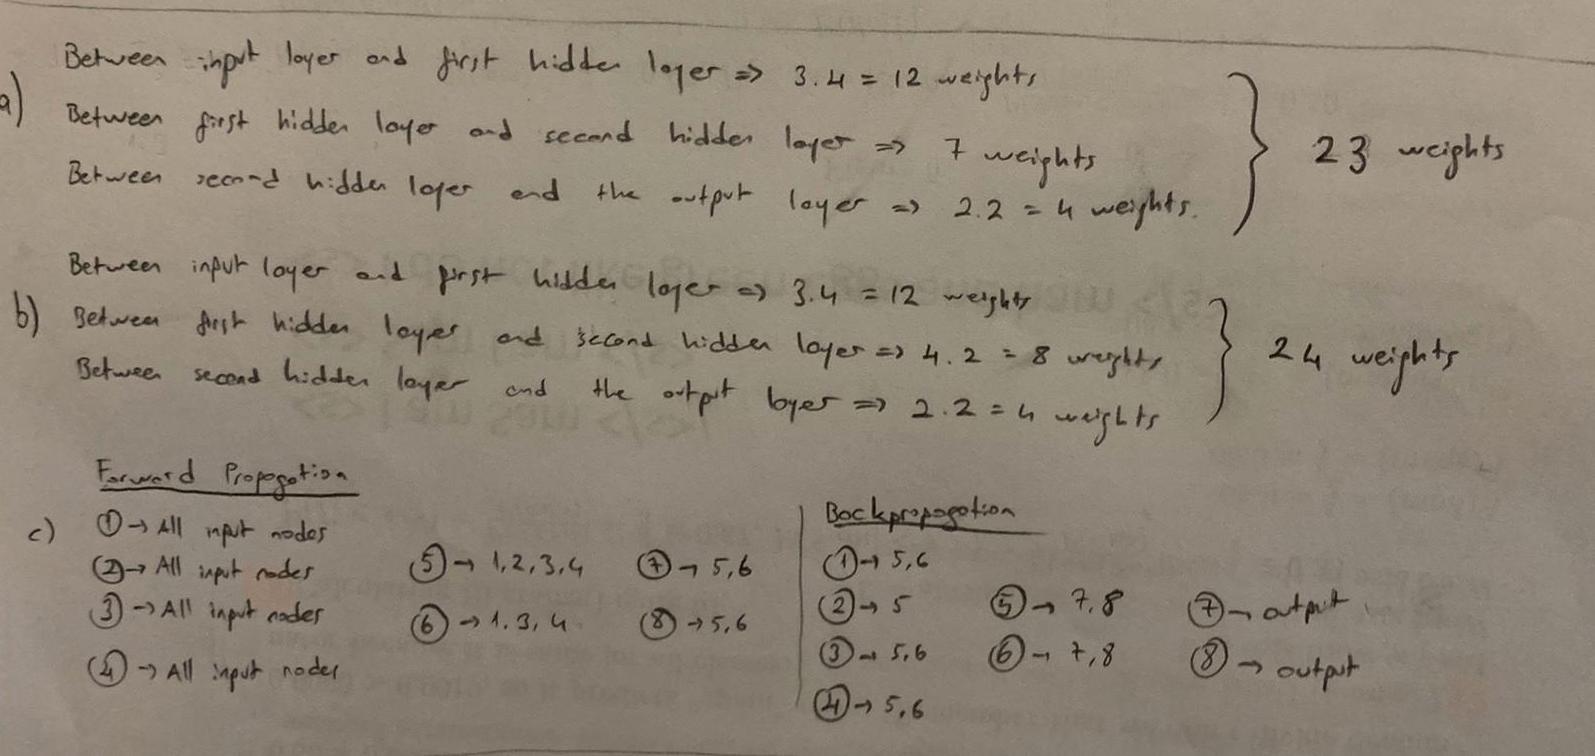 Between input layer and first hidden layer => 3.4 = 12 weights
a)
Between first hidden layer and second hidden layer => 7 weights
Between second hidden layer and the output layer => 2.2 = 4 weights.
23 weights
Between input layer and first hidden layer => 3.4 = 12 weights
b)
Between first hidden layer and second hidden layer => 4.2 = 8 weights
Between second hidden layer and the output layer => 2.2 = 4 weights
24 weights
c)
Forward Propogation
① → All input nodes
② → All input nodes
③ → All input nodes
④ → All input nodes
⑤ → 1,2,3,4
⑥ → 1.3,4
⑦ → 5,6
⑧ → 5,6
Backpropogation
① → 5,6
② → 5
③ → 5,6
④ → 5,6
⑤ → 7,8
⑥ → 7,8
⑦ → output
⑧ → output